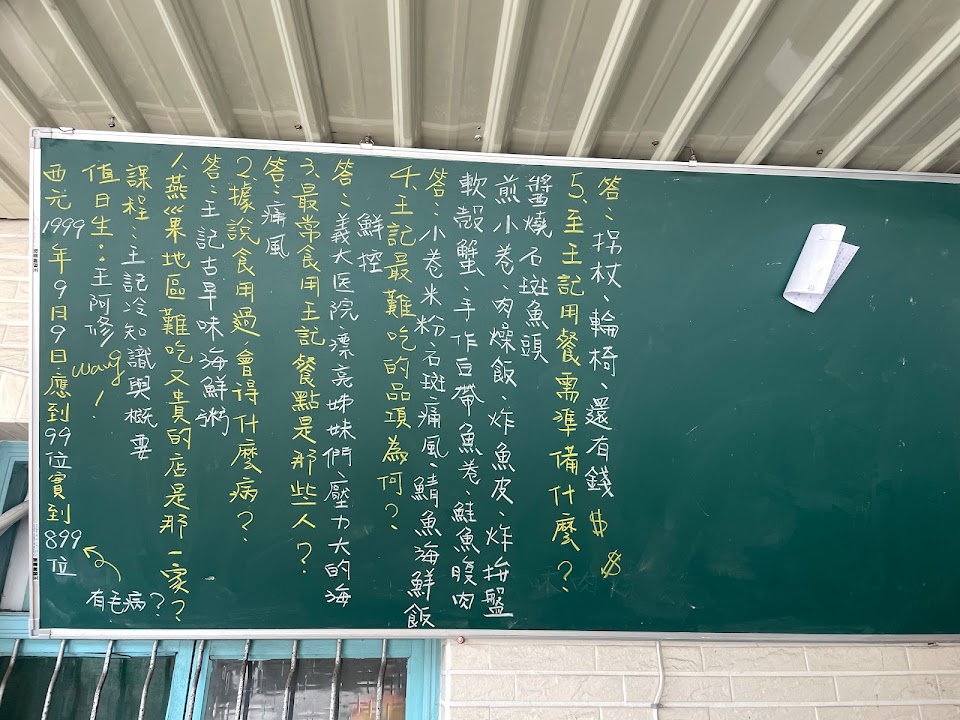 西元1999年9月9日應到99位實到899位
有毛病？
值日生：王阿修！
wang
課程：王記冷知識與概要
1.燕巢地區難吃又貴的店是那一家？
答：王記古早味海鮮粥
2.據說食用過會得什麼病？
答：痛風
3.最常食用王記餐點是那些人？
答：義大医院漂亮姊妹們、壓力大的海
鮮控
4.王記最難吃的品項為何？
答：小卷米粉、石斑痛風、鯖魚海鮮飯
軟殼蟹、手作白帶魚卷、鮭魚腹肉
煎小卷、肉燥飯、炸魚皮、炸拚盤
醬燒石斑魚頭
5.至王記用餐需準備什麼？
答：拐杖、輪椅、還有錢 $ $